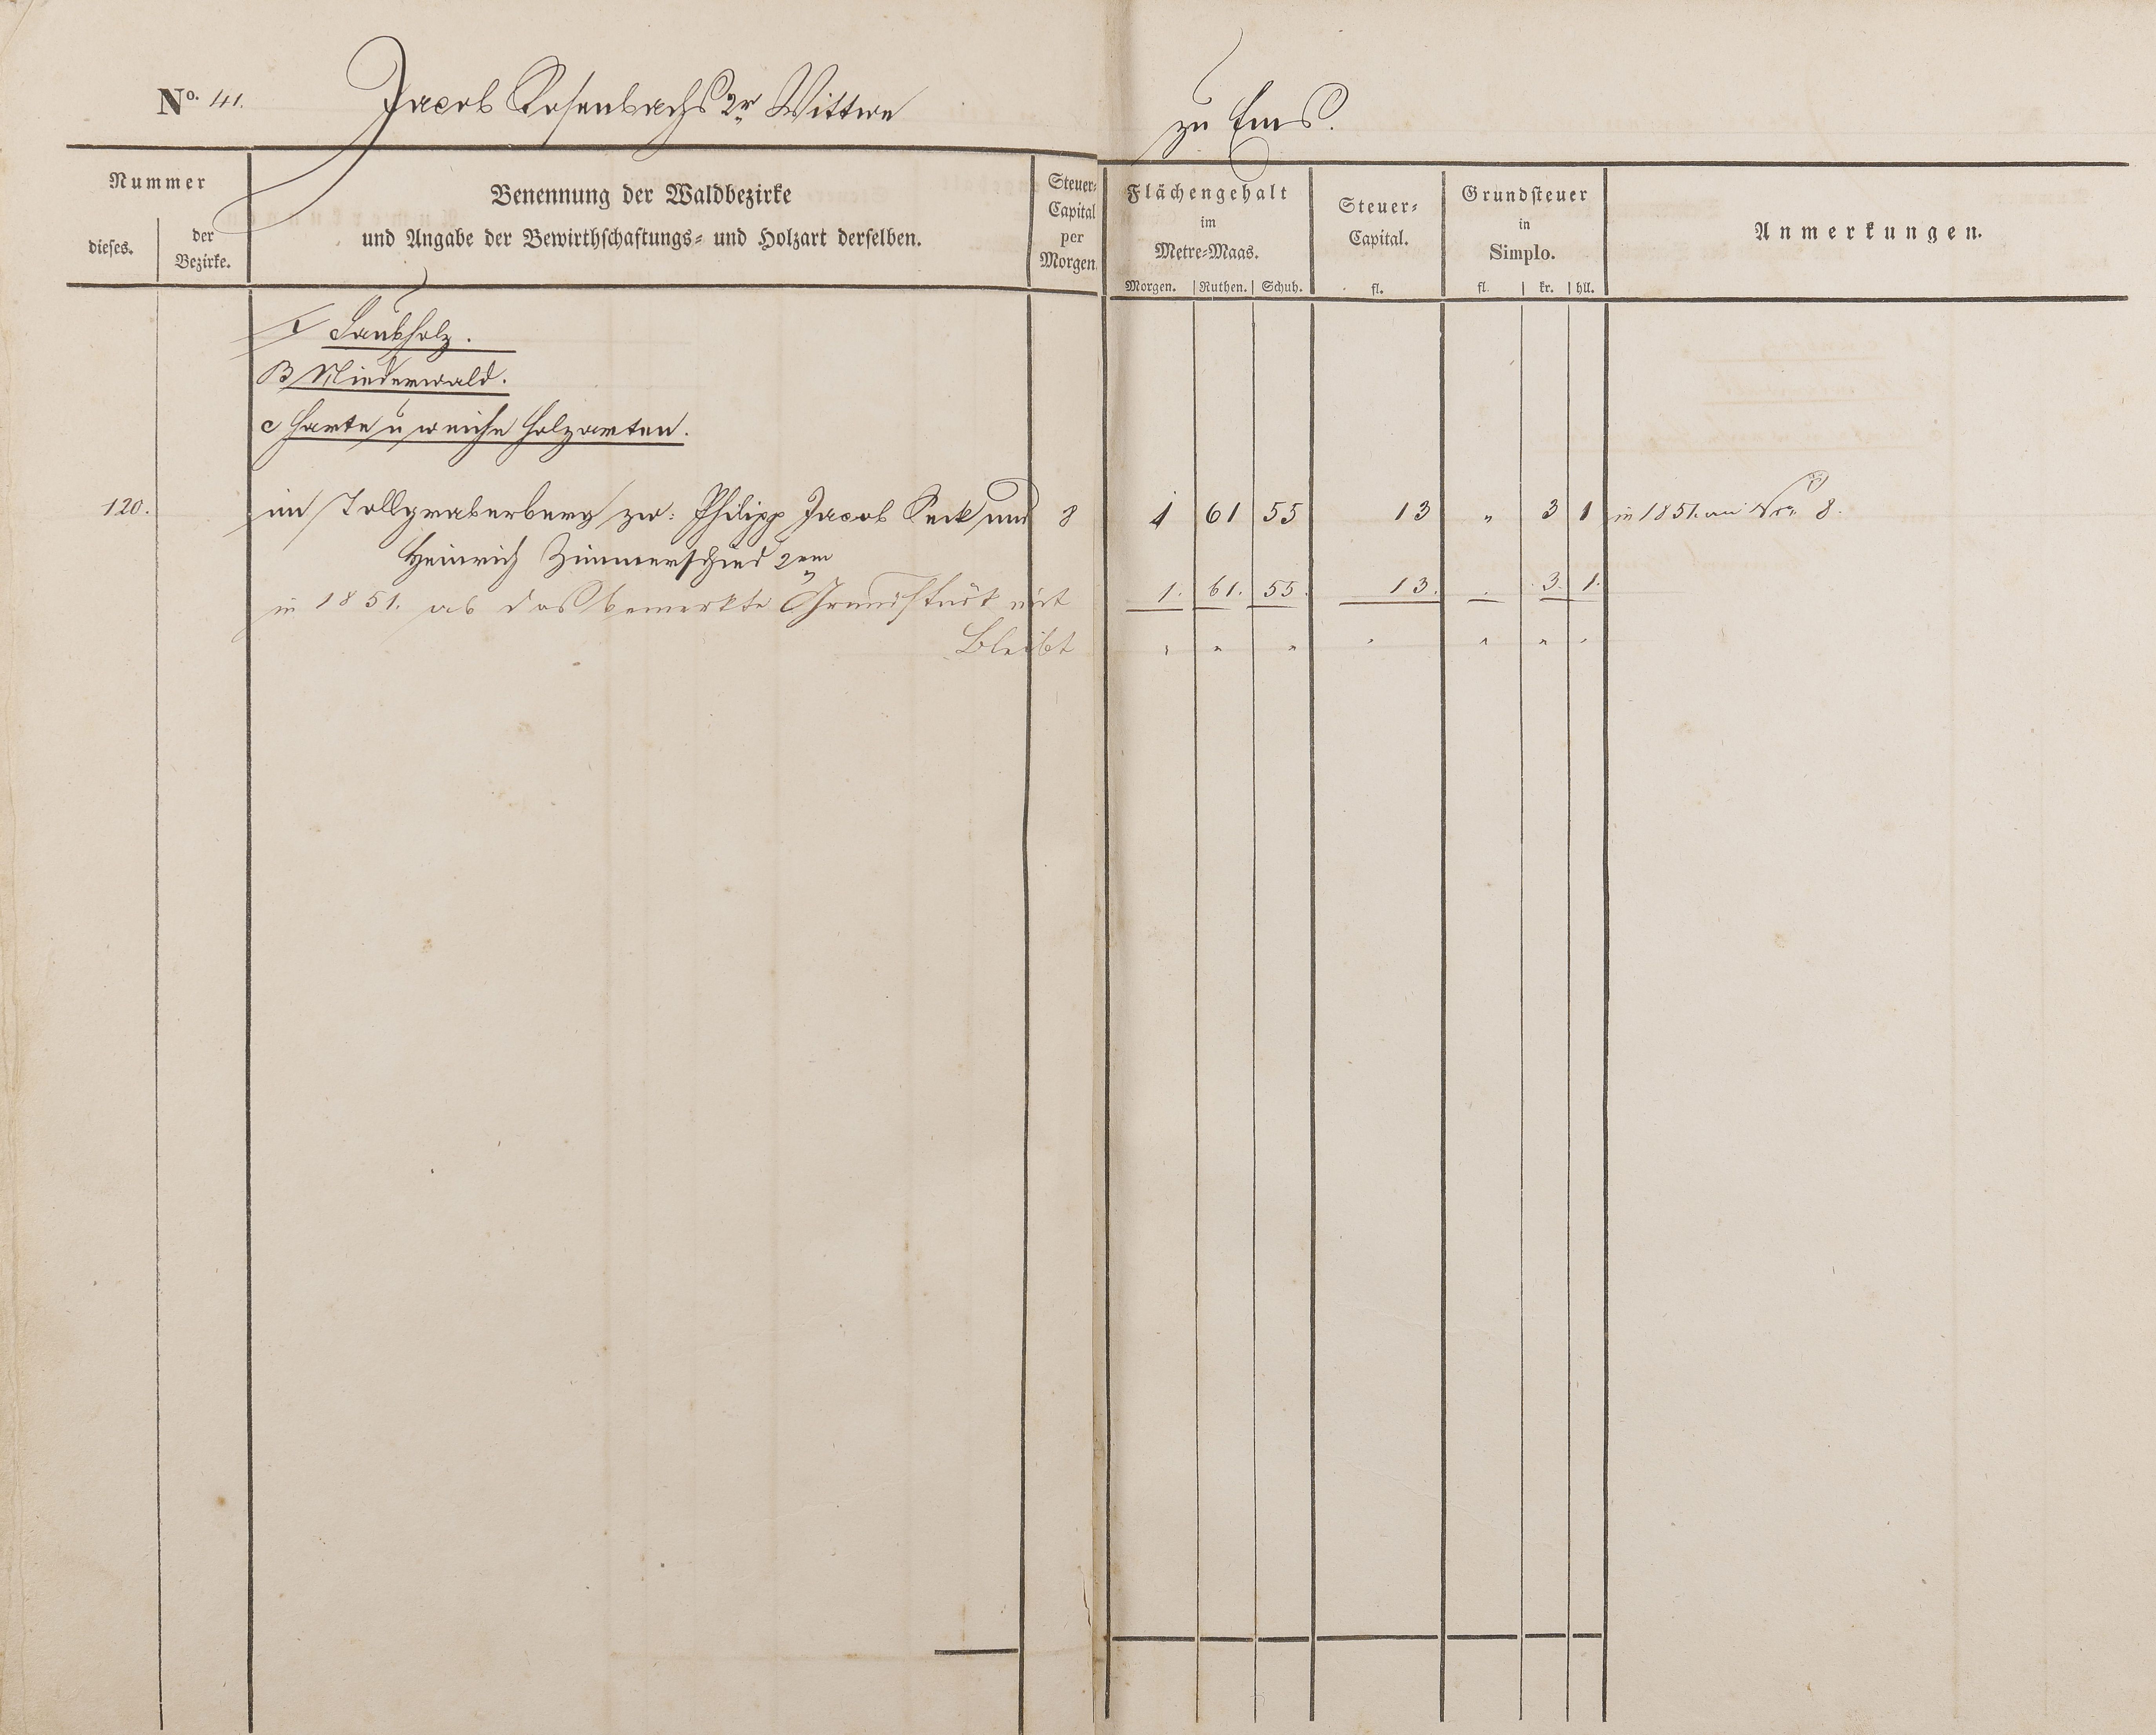 No. 41. Jacob Rosenbachs 2r Wittwe zu Ems.
Nummer
dieses.
der Bezirke.
Benennung der Waldbezirke
und Angabe der Bewirthschaftungs= und Holzart derselben.
Steuer=
Capital
per
Morgen.
Flächengehalt
im
Metre=Maas.
Morgen. Ruthen. Schuh.
Steuer=
Capital.
fl.
Grundsteuer
in
Simplo.
fl. kr. hll.
Anmerkungen.
I Laubholz.
B Niederwald.
c Harte u weiche Holzarten.
120. im Tollgraberberg zw: Philipp Jacob Seck und 8 1 61 55 13 „ 3 1 in 1851. an Nro 8.
Heinrich Zimmerschied 2em
in 1851. ab das bemerkte Grundstück mit 1. 61. 55. 13. . 3. 1.
Bleibt „ „ „ „ „ „ „